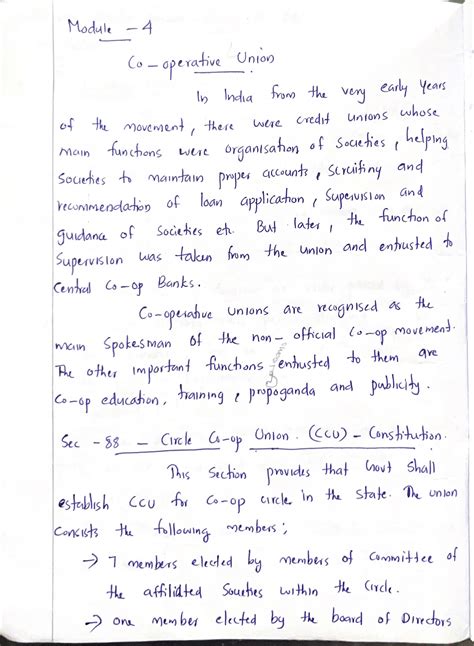 Module - 4
Co-operative Union
In India from the very early Years
of the movement, there were credit unions whose
main functions were organisation of Societies, helping
Societies to maintain proper accounts, Scruitiny and
recommendation of loan application, Supervision and
guidance of Societies etc. But later, the function of
Supervision was taken from the union and entrusted to
Central Co-op Banks.
Co-operative Unions are recognised as the
main Spokesman of the non-official Co-op movement.
The other important functions entrusted to them are
Co-op education, training, propoganda and publicity.
Sec - 88 - Circle Co-op Union. (CCU) - Constitution.
This Section provides that Govt Shall
establish CCU for Co-op circle in the State. The union
Consists the following members;
→ 7 members elected by members of Committee of
the affilidted Societies within the Circle.
→ one member elected by the board of Directors